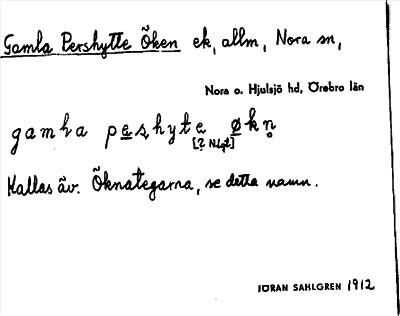 Gamla Pershytte Öken ek, allm, Nora sn,
Nora o. Hjulsjö hd, Örebro län
gamla pɛʂhyte økn̥
Kallas äv. Öknategarna, se detta namn.
JÖRAN SAHLGREN 1912